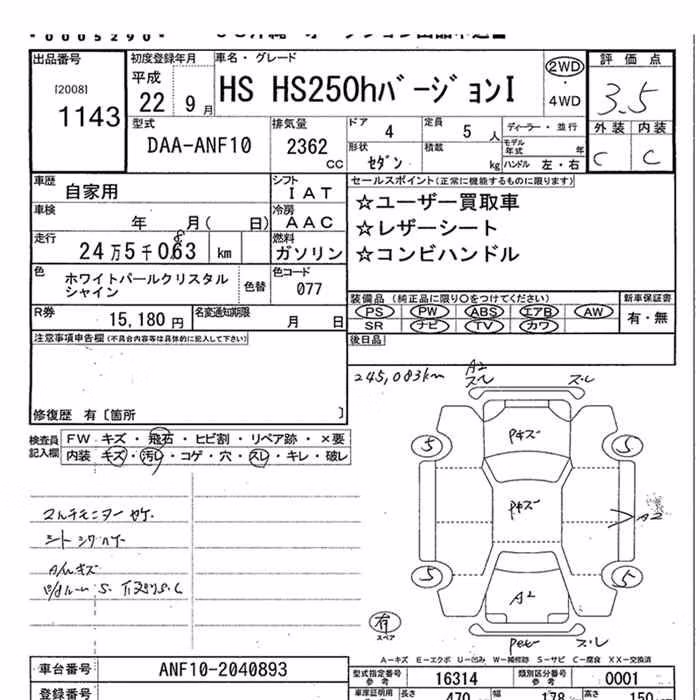 *00005290*
出品番号
[2008]
1143
初度登録年月
平成
22 9月
車名・グレード
HS HS250hバージョンI
2WD
・
4WD
評価点
3.5
外装 内装
C C
型式
DAA-ANF10
排気量
2362
CC
ドア
4
定員
5 人
形状
セダン
積載
kg
ディーラー・並行
モデル年式
年
ハンドル 左・右
車歴 自家用
シフト
I A T
車検
年 月( 日)
冷房
A A C
走行
24万5千063 km
8
燃料
ガソリン
色 ホワイトパールクリスタルシャイン
色替
色コード
077
R券 15,180 円
名変通知期限
月 日
セールスポイント(正常に機能するものに限ります)
☆ユーザー買取車
☆レザーシート
☆コンビハンドル
装備品 (純正品に限り○をつけてください)
PS PW ABS エアB AW
SR ナビ TV カワ
新車保証書
有・無
後日品
注意事項申告欄(不具合内容等は具体的に記入して下さい)
修復歴 有〔箇所 〕
検査員記入欄
FW キズ・飛石・ヒビ割・リペア跡・×要
内装 キズ・汚レ・コゲ・穴・スレ・キレ・破レ
マルチモニターヤケ.
シートシワハゲ
245,083km
A2
ズレ
ズレ
5
5
Pキズ
Pキズ
A2
5
5
A2
有
スペア
ズレ
A-キズ E-エクボ U-凹み W-補修跡 S-サビ C-腐食 XX-交換済
車台番号 ANF10-2040893
型式指定番号
参考
16314
類別区分番号
参考
0001
登録番号
車庫証明用
参考
長さ
470
幅
178
高さ
150